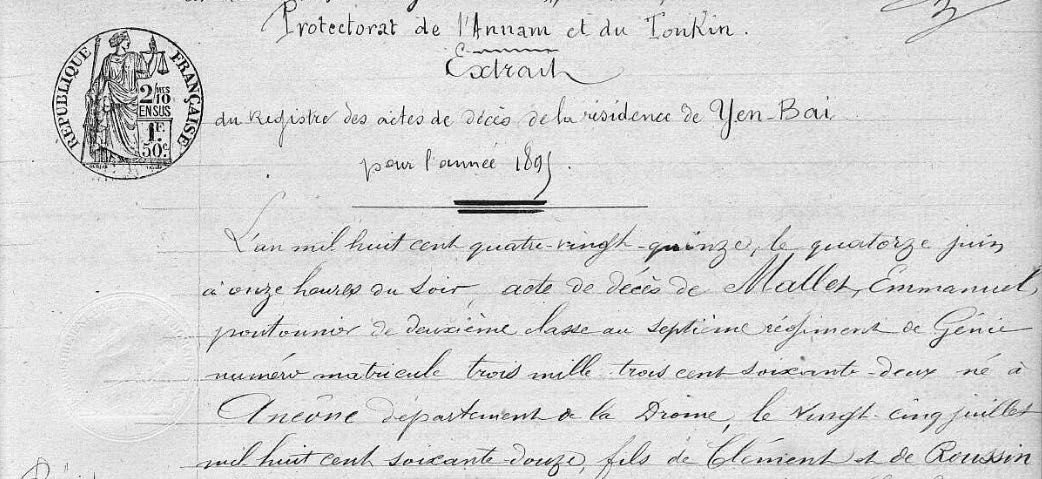 Protectorat de l'Annam et du Tonkin.
Extrait
RÉPUBLIQUE FRANÇAISE
2/10 MES
EN SUS
1F.
50c.
du Registre des actes de décès de la résidence de Yen-Bai
pour l'année 1895.
L'an mil huit cent quatre-vingt-quinze, le quatorze juin
à onze heures du soir, acte de décès de Mallet, Emmanuel,
pontonnier de deuxième classe au septième régiment de Génie
numéro matricule trois mille trois cent soixante-deux né à
Ancône département de la Drôme, le vingt-cinq juillet
mil huit cent soixante-douze, fils de Clément et de Roussin